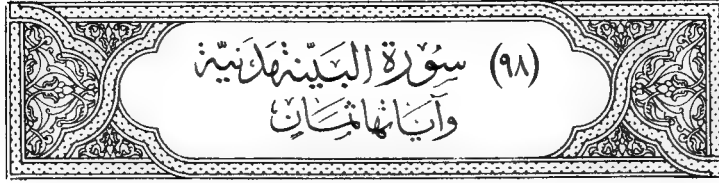 (٩٨) سُورَة البَيّنَة مَدَنيّة
وَآيَاتهَا ثَمَان